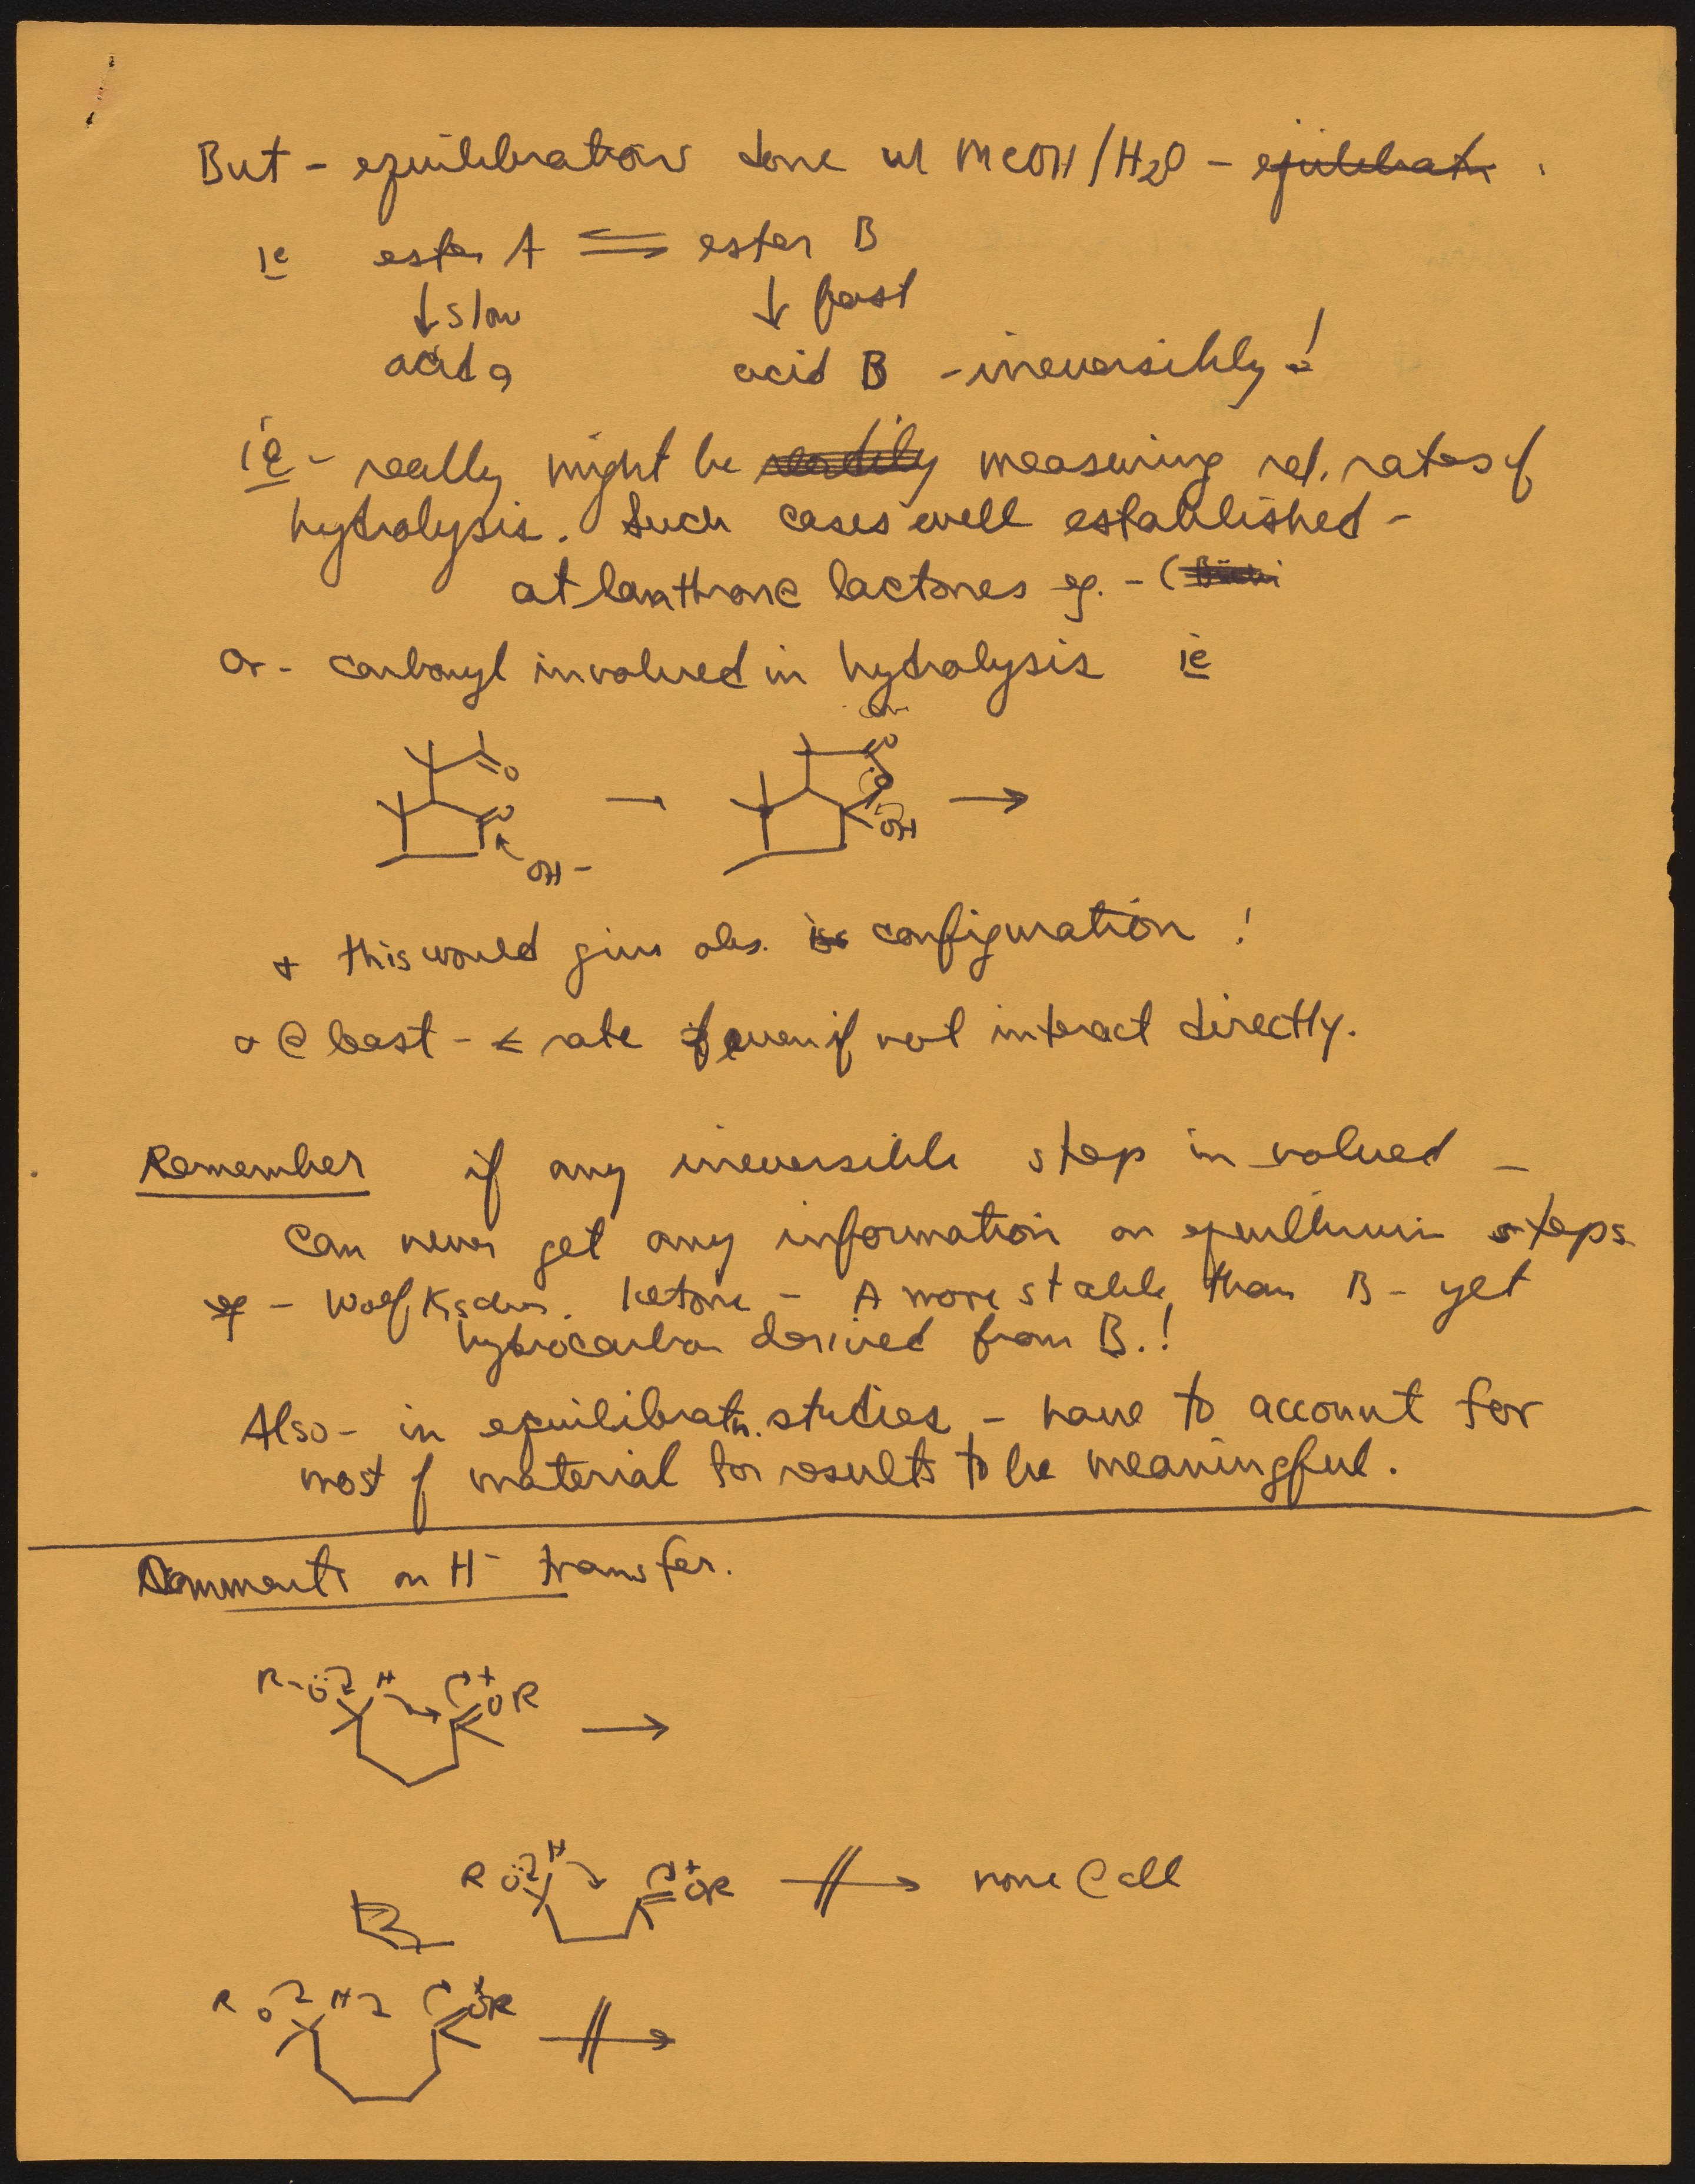 But - equilibrations done w/ MeOH/H2O - equilibratn
ie ester A ⇌ ester B
↓ slow ↓ fast
acid a acid B - irreversibly!
ie - really might be readily measuring rel. rates of
hydrolysis. Such cases well established -
at lanthrone lactones eg. - (Büchi
Or - carbonyl involved in hydrolysis ie
O
O O
O
OH
OH -
+ this would give obs. configuration!
@ least - rate even if not interact directly.
Remember if any irreversible step involved -
Can never get any information on equilibrium steps
eg - Wolf Kschnr. ketone - A more stable than B - yet
hydrocarbon derived from B.!
Also - in equilibratn. studies - have to account for
most of material for results to be meaningful.
Comments on H- transfer.
R-O H + OR →
R O H + OR → none @ all
R O H + OR